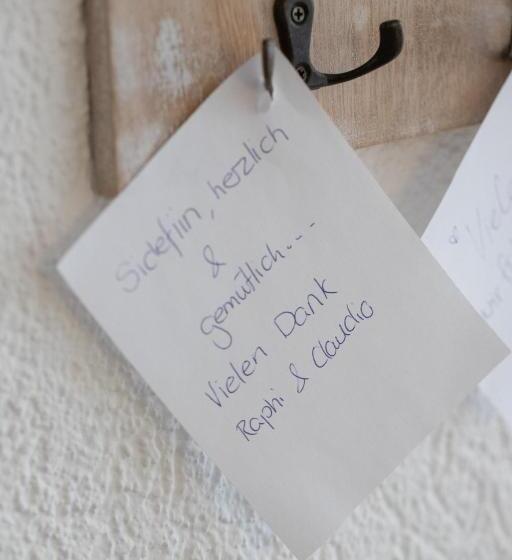 Sidefiin, herzlich
&
gemütlich...
Vielen Dank
Raphi & Claudio